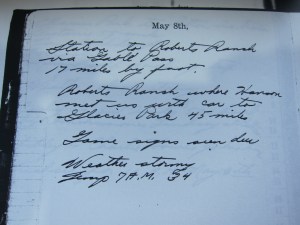 May 8th,
Station to Roberts Ranch
via Gable Pass
17 miles by foot.
Roberts Ranch where Hanson
met us with car to
Glacier Park 45 miles
Game signs seen deer
Weather stormy
Temp 7 A.M. 34